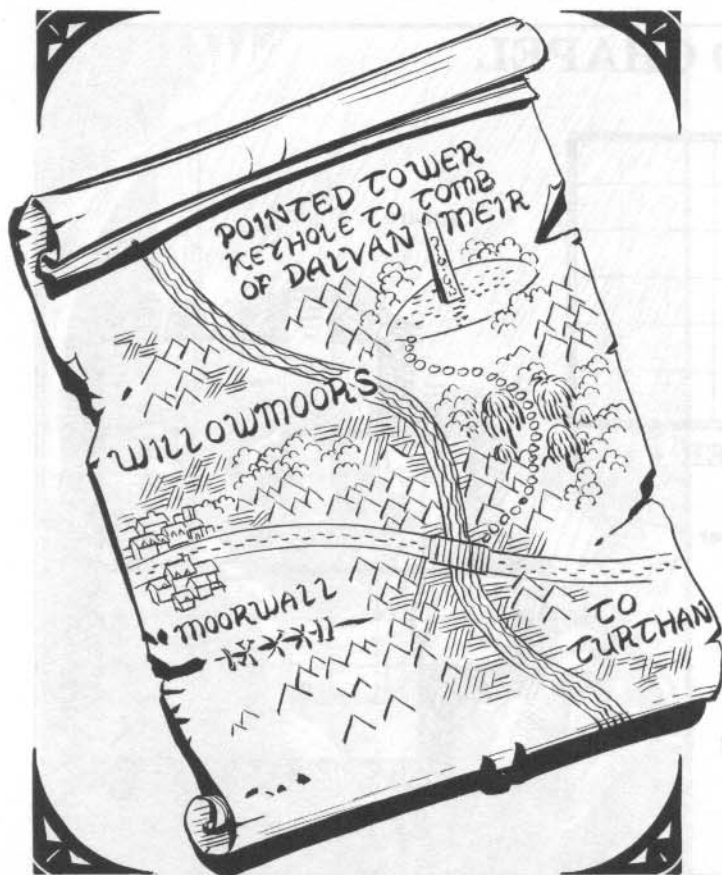 POINTED TOWER
KEYHOLE TO TOMB
OF DALVAN MEIR
WILLOWMOORS
MOORWALL
TO
TURTHAN